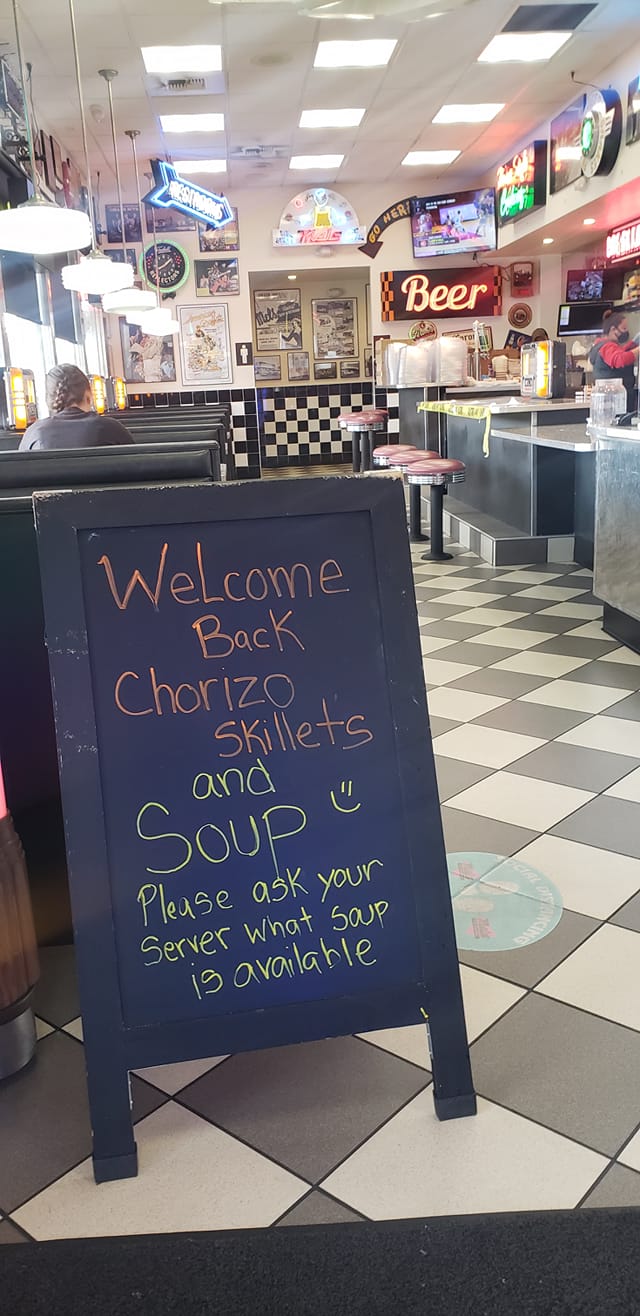 RESTROOMS
Mel's
GO HERE
Beer
Mel's
Welcome
Back
Chorizo
Skillets
and
Soup
Please ask your
Server what soup
is available
SOCIAL DISTANCING